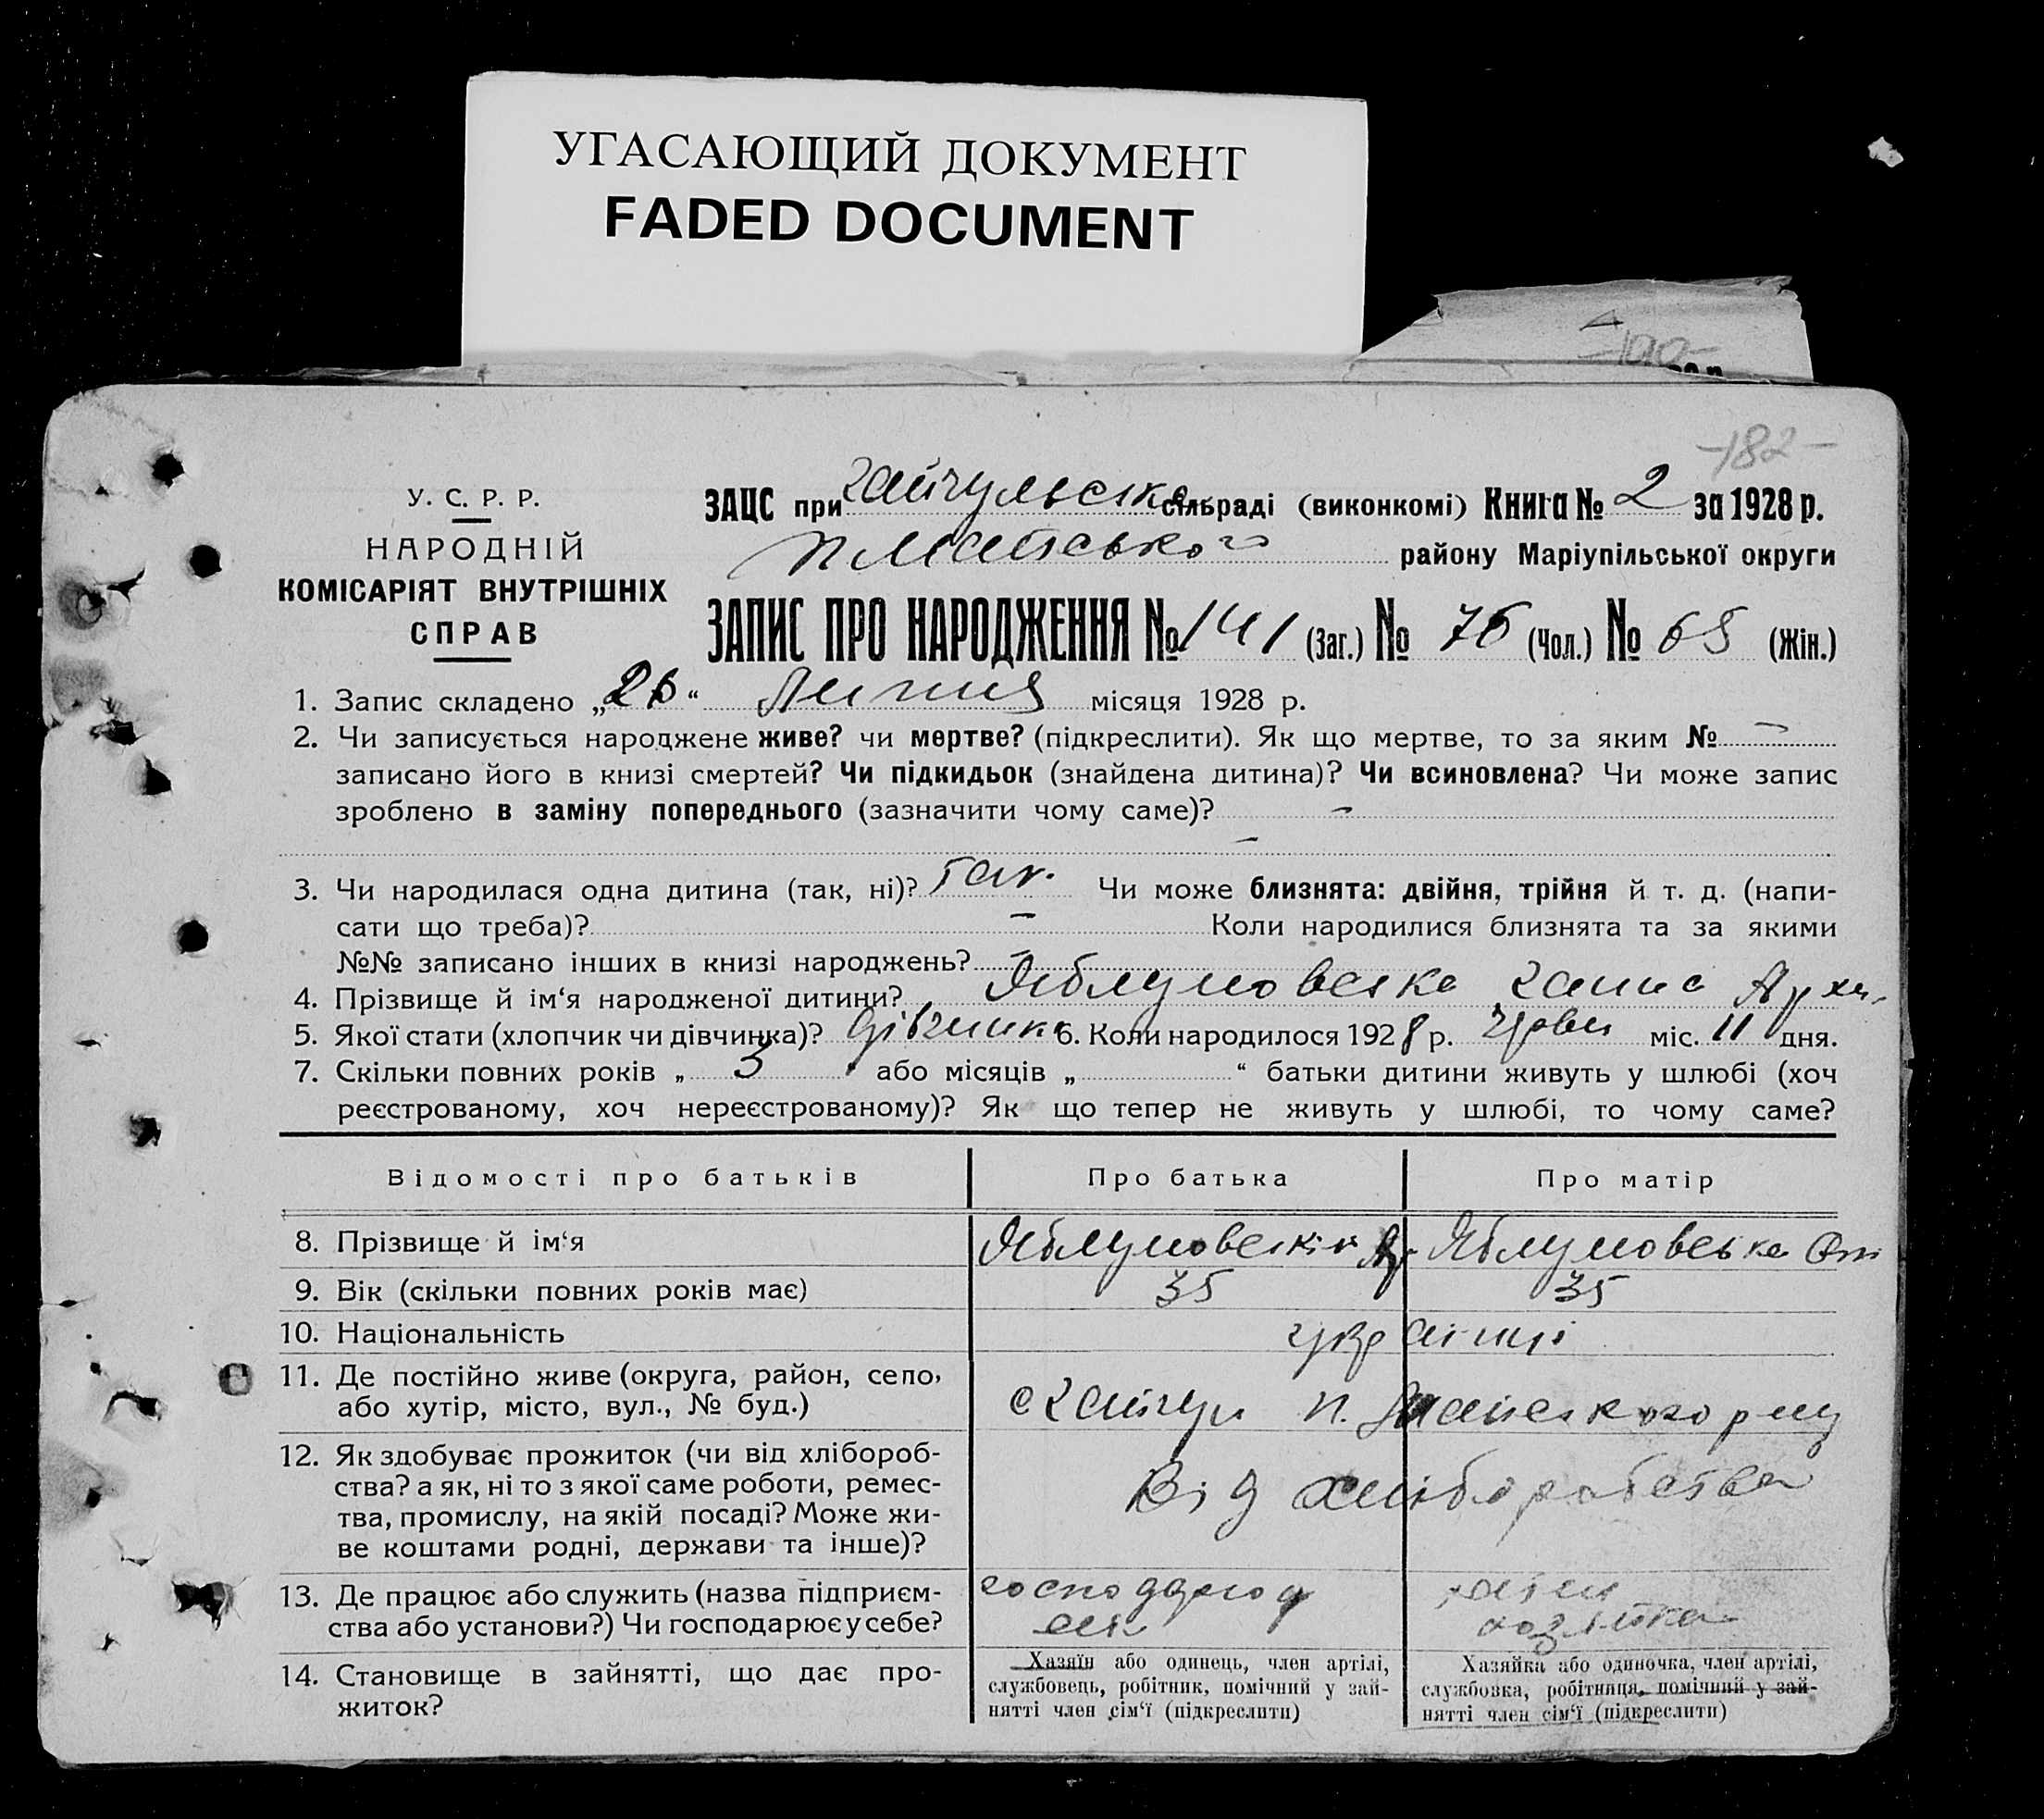 УГАСАЮЩИЙ ДОКУМЕНТ
FADED DOCUMENT
-182-
У. С. Р. Р.
НАРОДНІЙ
КОМІСАРІЯТ ВНУТРІШНІХ
СПРАВ
ЗАЦС при Гайчульська сільраді (виконкомі) Книга № 2 за 1928 р.
району Маріупільської округи
ЗАПИС ПРО НАРОДЖЕННЯ № 141 (Заг.) № 76 (Чол.) № 65 (Жін.)
1. Запис складено „26“ Липня місяця 1928 р.
2. Чи записується народжене живе? чи мертве? (підкреслити). Як що мертве, то за яким № –
записано його в книзі смертей? Чи підкидьок (знайдена дитина)? Чи всиновлена? Чи може запис
зроблено в заміну попереднього (зазначити чому саме)? –
–
3. Чи народилася одна дитина (так, ні)? так. Чи може близнята: двійня, трійня й т. д. (напи-
сати що треба)? – Коли народилися близнята та за якими
№№ записано інших в книзі народжень? –
4. Прізвище й ім‘я народженої дитини? Яблуновська Ганна Архи.
5. Якої стати (хлопчик чи дівчинка)? дівчинка 6. Коли народилося 1928 р. Червн міс. 11 дня.
7. Скільки повних років „ 3 “ або місяців „ “ батьки дитини живуть у шлюбі (хоч
реєстрованому, хоч нереєстрованому)? Як що тепер не живуть у шлюбі, то чому саме?
Відомості про батьків Про батька Про матір
8. Прізвище й ім‘я Яблуновський Ар. Яблуновська
9. Вік (скільки повних років має) 35 35
10. Національність українці
11. Де постійно живе (округа, район, село,
або хутір, місто, вул., № буд.) с Гайчул п.
12. Як здобуває прожиток (чи від хлібороб-
ства? а як, ні то з якої саме роботи, ремес-
тва, промислу, на якій посаді? Може жи-
ве коштами родні, держави та інше)? Від хліборобства
13. Де працює або служить (назва підприєм-
ства або установи?) Чи господарює у себе? господарю у хатня
себе хозяйка
14. Становище в зайнятті, що дає про-
житок?
Хазяїн або одинець, член артілі,
службовець, робітник, помічний у зай-
нятті член сім‘ї (підкреслити)
Хазяйка або одиночка, член артілі,
службовка, робітниця, помічний у зай-
нятті член сім‘ї (підкреслити)